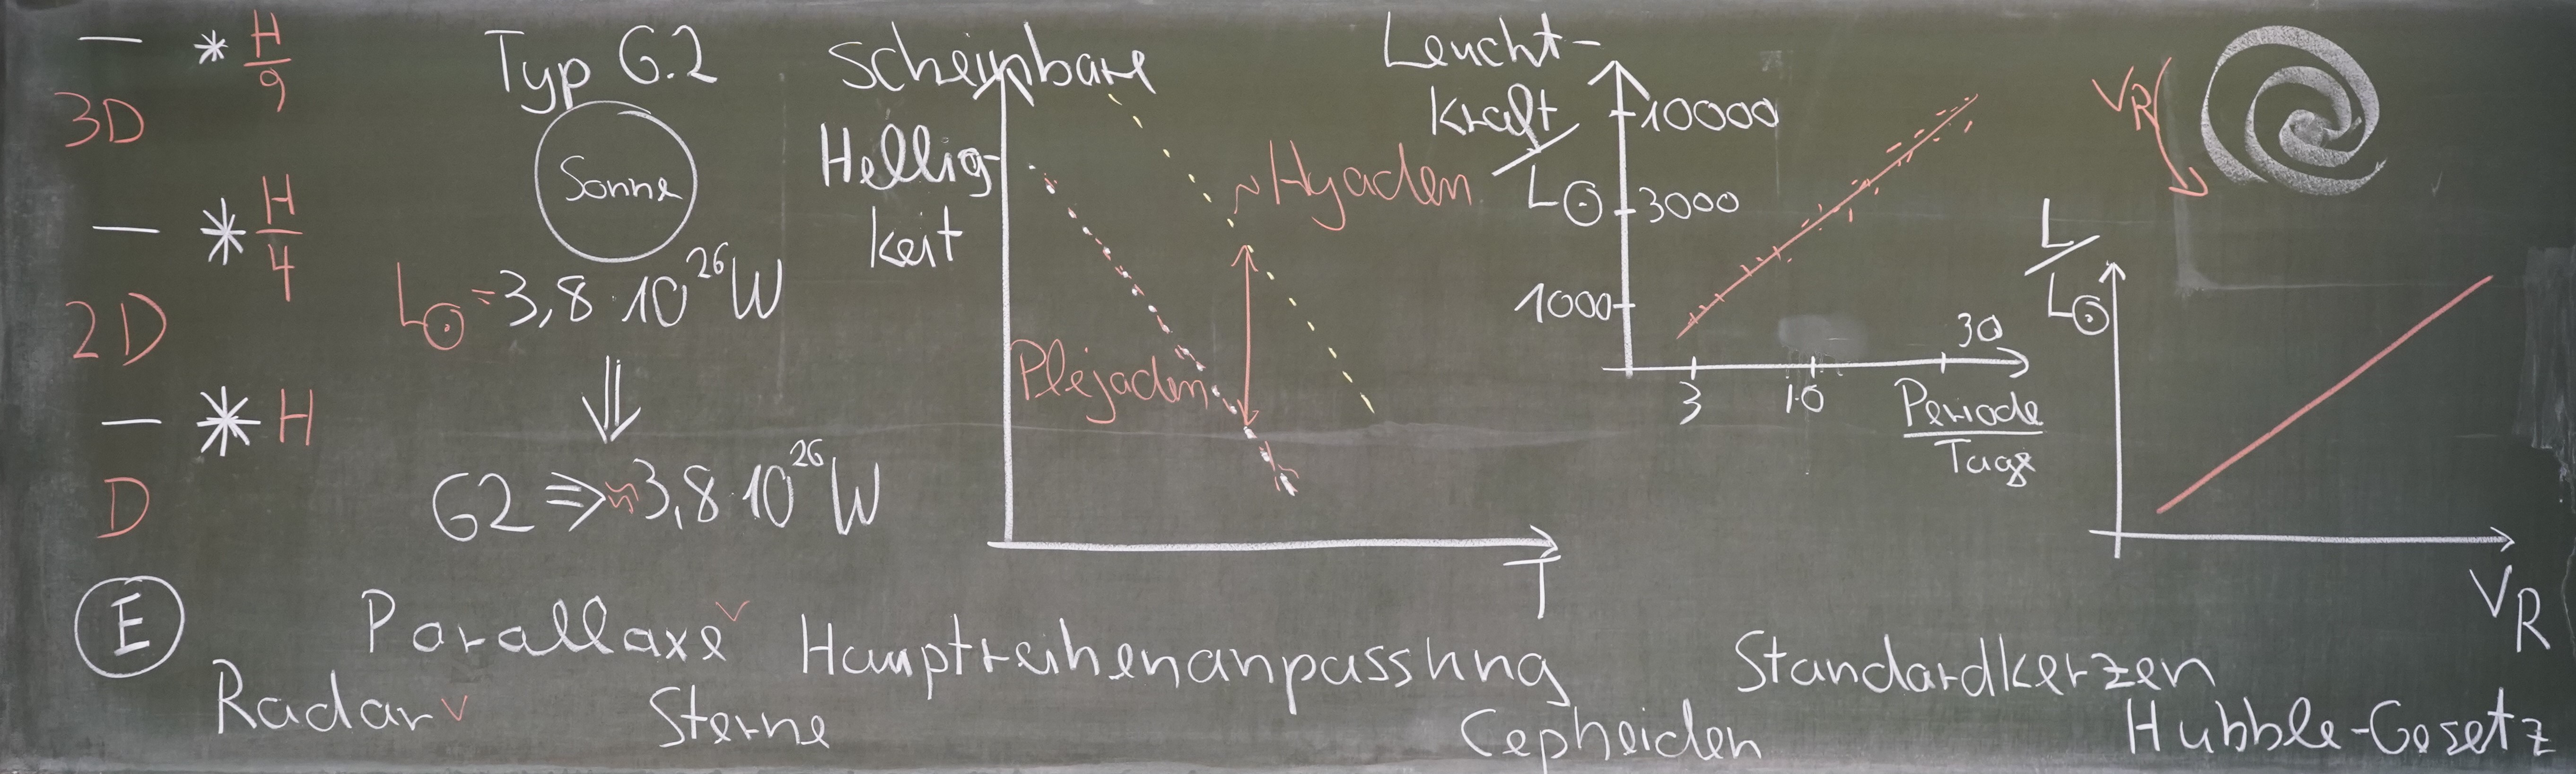 — * H/9
3D
— * H/4
2D
— * H
D
E
Typ G.2
Sonne
L☉ = 3,8 · 10²⁶ W
⇓
G2 ⇒ ≈ 3,8 · 10²⁶ W
Scheinbare
Hellig-
keit
~ Hyaden
Plejaden
T
Leucht-
kraft
/ L☉
10000
3000
1000
3
10
30
Periode
Tage
V_R
L / L☉
V_R
Parallaxe ✓
Radar ✓
Sterne
Hauptreihenanpassung
Cepheiden
Standardkerzen
Hubble-Gesetz